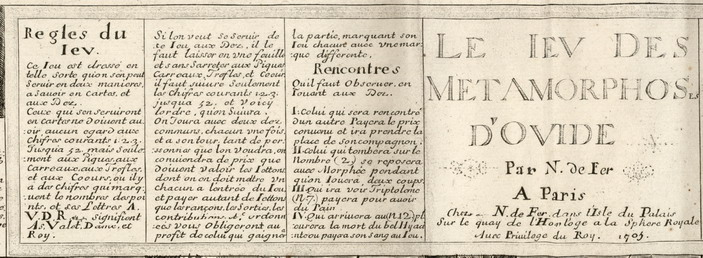 Regles du
Ieu.
Ce Ieu est dressé en
telle Sorte qu'on s'en peut
Servir en deux manieres,
a Sauoir en Cartes, et
aux Dez.
Ceux qui s'en Seruiront
en cartes ne Doiuent au-
oir aucun egard aux
Chifres courants 1.2.3.
Iusquia 52. mais Seule-
ment aux Piques, aux
Carreaux, aux Trefles,
et aux Coeurs, ou il y
a des chifres qui marq-
uent le nombres des poi
nts, et Ses Lettres A.
V. D. R. Signifient
As. Valet, Dame, et
Roy.
Si l'on veut se Seruir de
ce Ieu aux Dez, il le
faut laisser en vne feuille
et sans S'arreter aux Piques
Carreaux, Trefles, et Coeurs
il faut Suiure Seulement
les Chifres courants 1.2.3.
jusqu'a 52. et Voicy
l'ordre, qu'on Suiura.
On Ioura auec deux dez
communs, chacun vne fois,
et a son tour, tant de per-
sonnes que l'on Voudra, on
conuiendra de prix que
Doiuent Valoir les Iettons
dont on en doit mettre Vn
chacun a l'entrée du Ieu,
et payer autant de Iettons
que les rançons, les Sorties, les
contributions &c. ordonn
ées Vous Obligeront au
profit de celui qui gaigne
la partie, marquant son
Ieu chacun auec vne mar-
que differente.
Rencontres
Qu'il faut Obseruer, en
Iouant aux Dez.
I. Celui qui Sera rencontré
d'un autre Payera le prix
conuenu et ira prendre la
place de Son compagnon.
II. Celui qui tombera Sur le
Nombre (2) Se reposera
auec Morphée pendant
qu'on Iouera deux coups.
III. Qui ira voir Triptoleme
(N.7) payera pour auoir
du Pain
IV. Qui arriuera au (N.12) pl
eurera la mort du bel Hyad
inte ou payra son Sang au Ieu.
LE IEV DES
METAMORPHOSES
D'OVIDE
Par N. de Fer
A Paris
Chez N. de Fer, dans l'Isle du Palais
Sur le quay de l'Horloge a la Sphere Royale
Auec Priuilege du Roy. 1705.